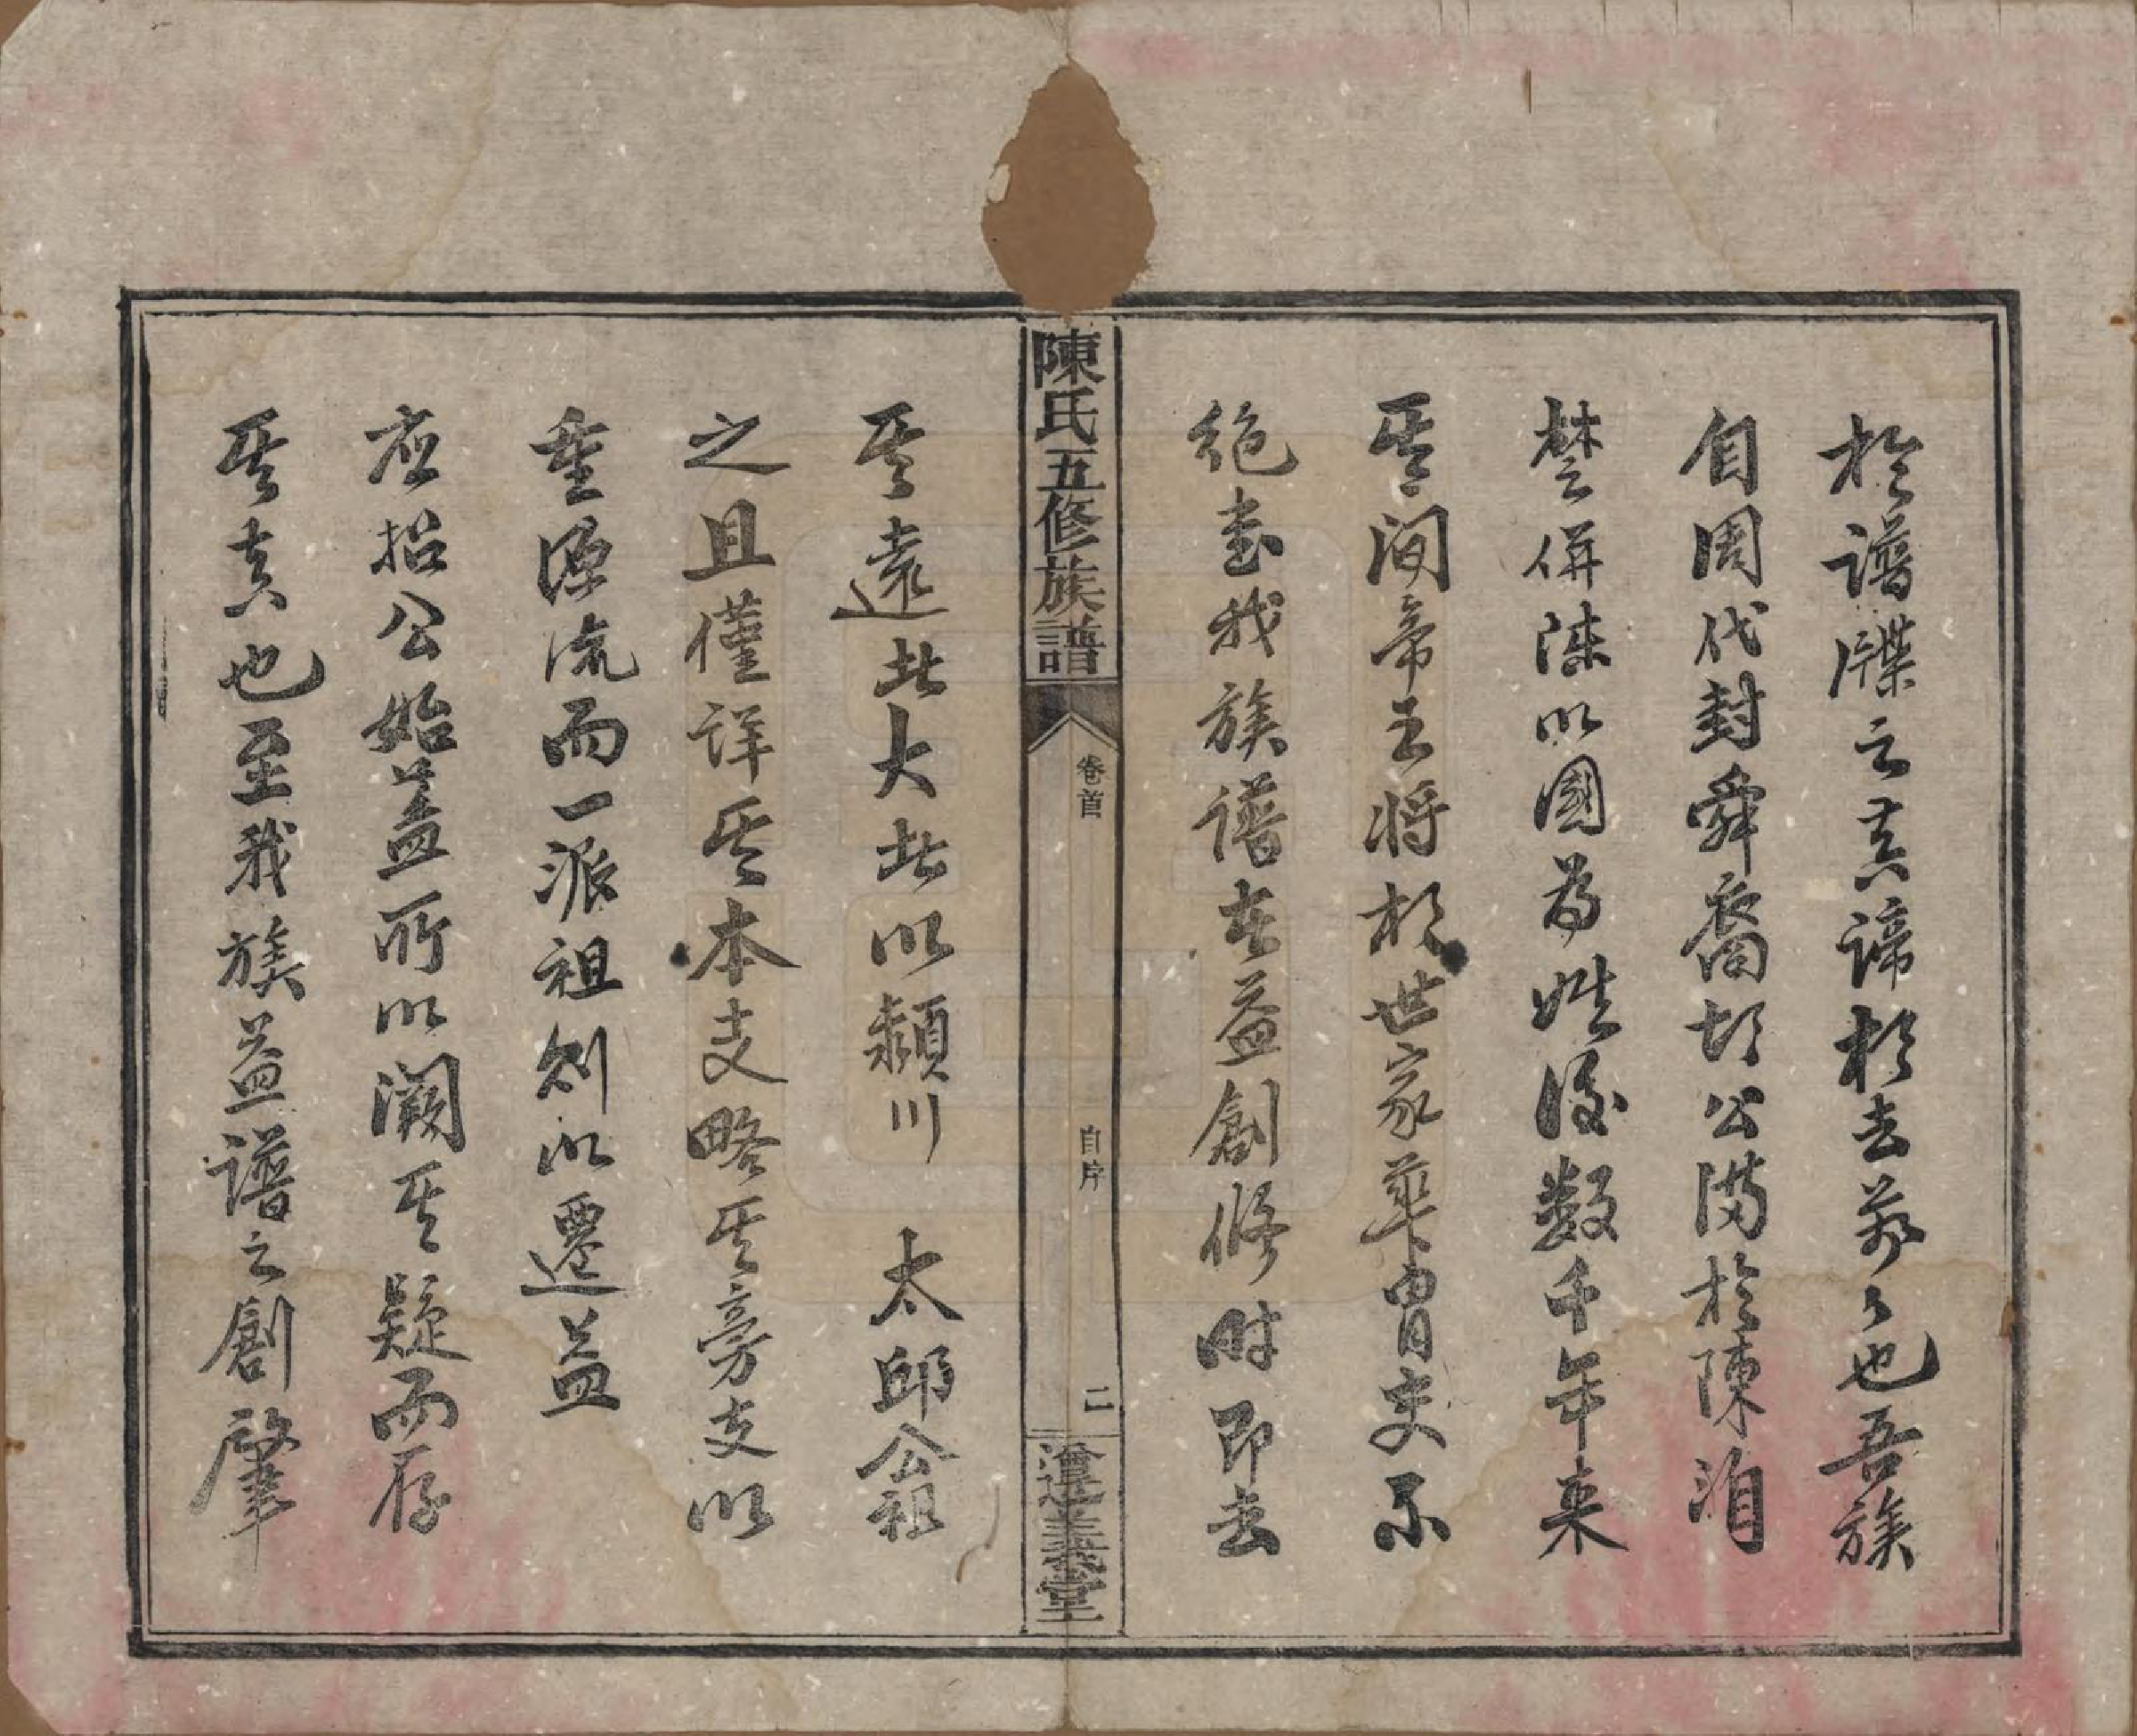 於譜牒之真諦相去萬々也吾族
自周代封舜裔胡公滿於陳洎
楚併陳以國為姓後数千年来
其间帝王將相世家華胄史不
絕書我族譜在益創修時即去
其遠者大者以頴川　太邱公祖
之且僅詳其本支略其旁支以
重源流而一派祖別以遷益
应招公始蓋所以闕其疑而存
其真也至我族益譜之創肇
陳氏五修族譜
卷首
自序
二
義堂